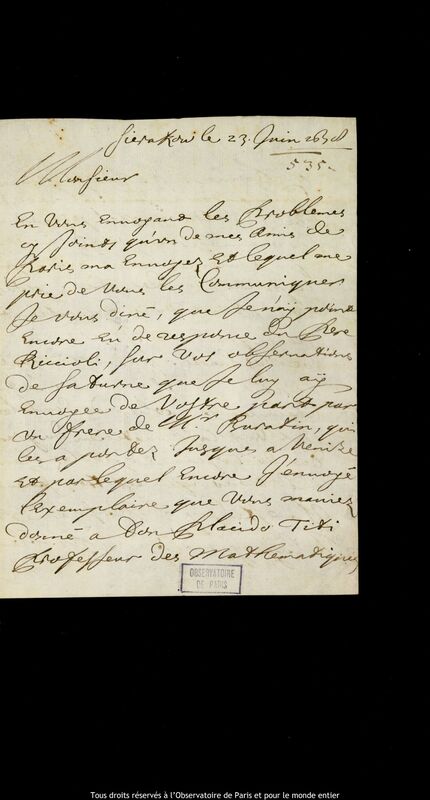 Sierakow le 23. Juin 1658
535-
Monsieur
En Vous Envoyant les Problemes
cy Joints qu'un de mes Amis de
Paris ma Envoyez Et lequel me
prie de Vous les Communiquer
Je vous diré, que Je n'ay point
Encore eü de responce du Pere
Riccioli, sur vos observations
de saturne que Je luy aÿ
Envoyée de Vostre part par
un frere de Mr Buratin, qui
les a portéz Jusques a Venize
Et par lequel Encore J'envoyé
l'exemplaire que Vous m'aviez
donné a Don Placido Titi
Professeur des Mathematiques
OBSERVATOIRE
DE PARIS
Tous droits réservés à l'Observatoire de Paris et pour le monde entier